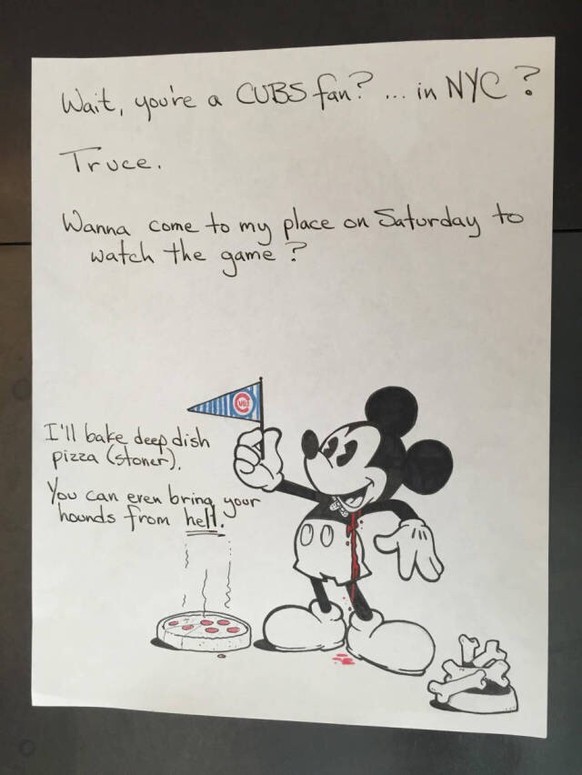 Wait, you're a CUBS fan? ... in NYC?
Truce.
Wanna come to my place on Saturday to
watch the game?
I'll bake deep dish
pizza (stoner).
You can even bring your
hounds from hell.